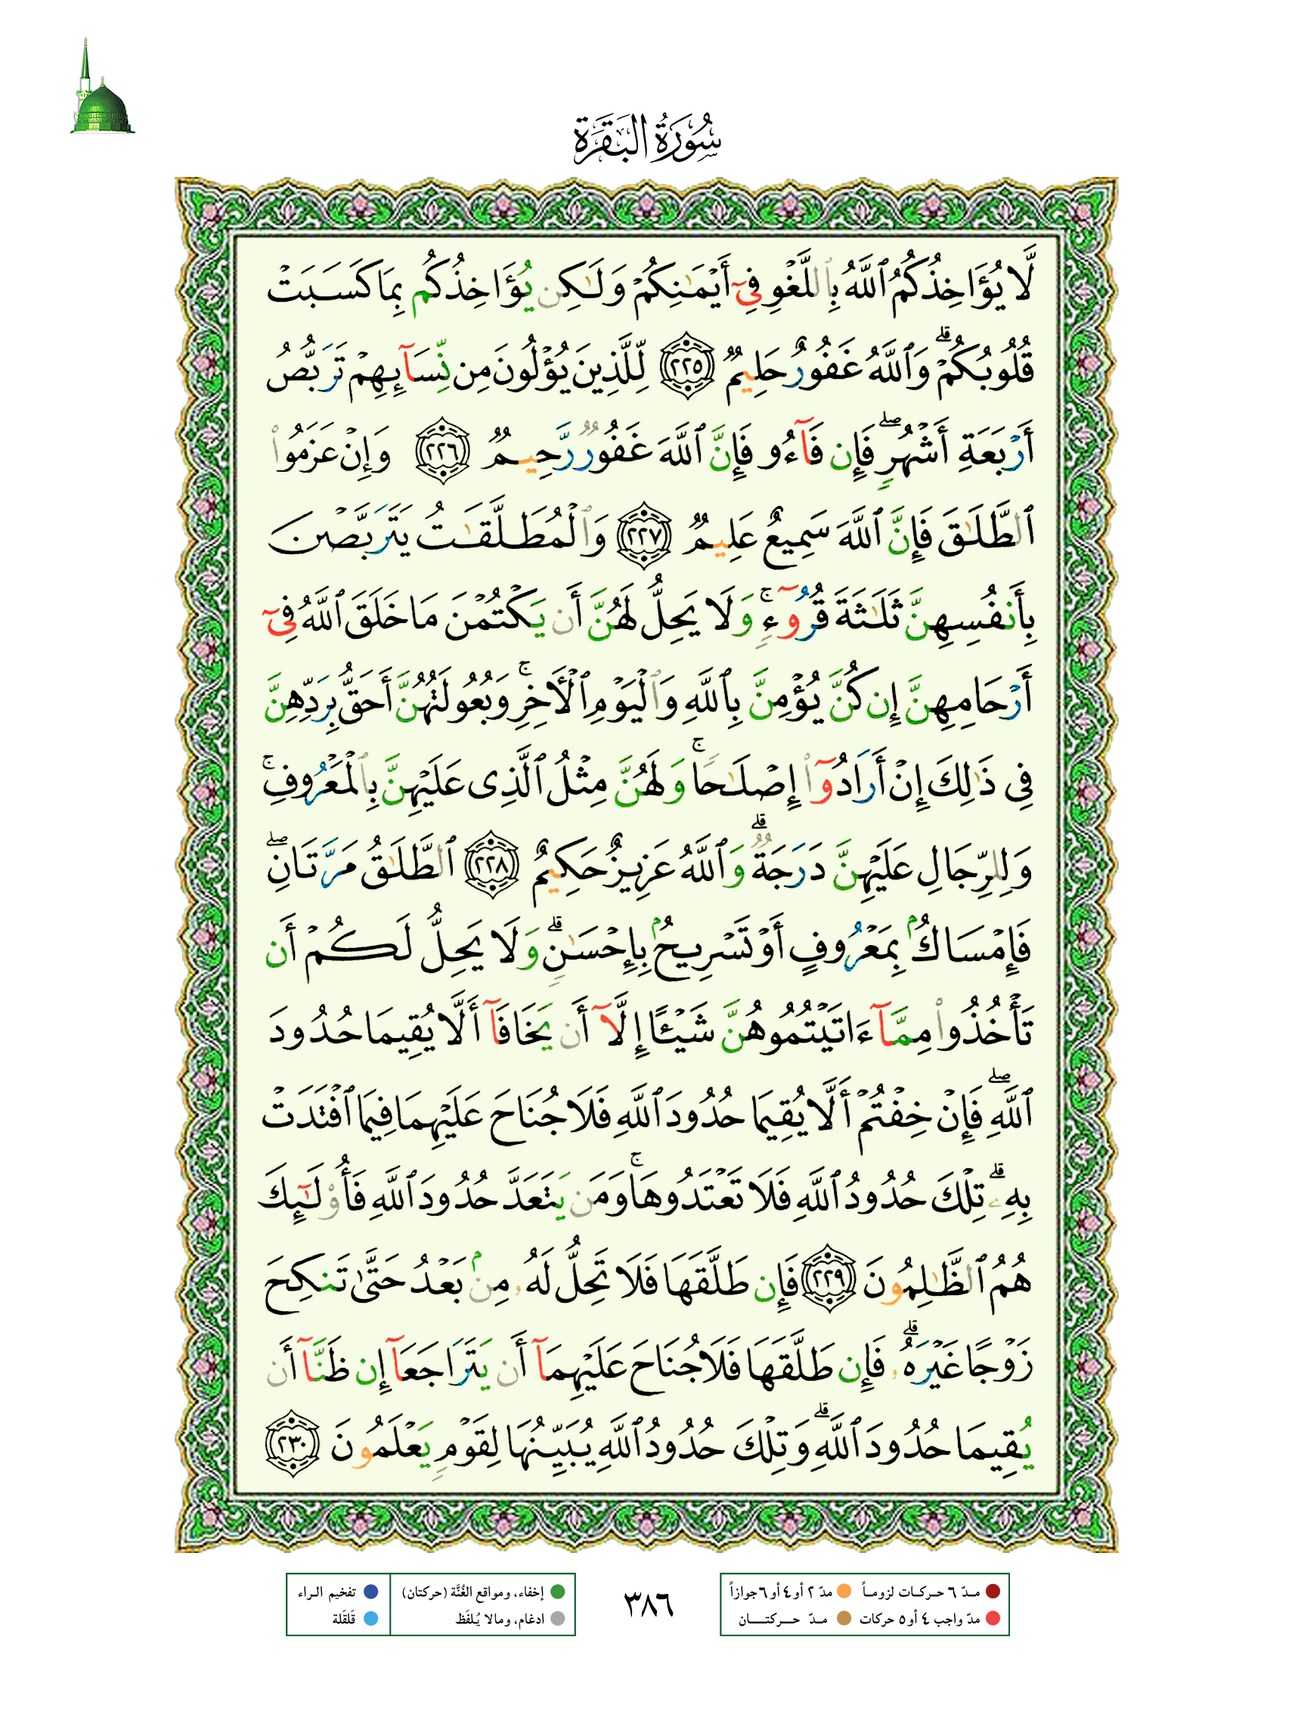 سُورَةُ البَقَرَةِ
لَّا يُؤَاخِذُكُمُ ٱللَّهُ بِٱللَّغْوِ فِىٓ أَيْمَـٰنِكُمْ وَلَـٰكِن يُؤَاخِذُكُم بِمَا كَسَبَتْ
قُلُوبُكُمْ ۗ وَٱللَّهُ غَفُورٌ حَلِيمٌ ٢٢٥ لِّلَّذِينَ يُؤْلُونَ مِن نِّسَآئِهِمْ تَرَبُّصُ
أَرْبَعَةِ أَشْهُرٍ ۖ فَإِن فَآءُو فَإِنَّ ٱللَّهَ غَفُورٌ رَّحِيمٌ ٢٢٦ وَإِنْ عَزَمُوا۟
ٱلطَّلَـٰقَ فَإِنَّ ٱللَّهَ سَمِيعٌ عَلِيمٌ ٢٢٧ وَٱلْمُطَلَّقَـٰتُ يَتَرَبَّصْنَ
بِأَنفُسِهِنَّ ثَلَـٰثَةَ قُرُوٓءٍ ۚ وَلَا يَحِلُّ لَهُنَّ أَن يَكْتُمْنَ مَا خَلَقَ ٱللَّهُ فِىٓ
أَرْحَامِهِنَّ إِن كُنَّ يُؤْمِنَّ بِٱللَّهِ وَٱلْيَوْمِ ٱلْـَٔاخِرِ ۚ وَبُعُولَتُهُنَّ أَحَقُّ بِرَدِّهِنَّ
فِى ذَٰلِكَ إِنْ أَرَادُوٓا۟ إِصْلَـٰحًا ۚ وَلَهُنَّ مِثْلُ ٱلَّذِى عَلَيْهِنَّ بِٱلْمَعْرُوفِ ۚ
وَلِلرِّجَالِ عَلَيْهِنَّ دَرَجَةٌ ۗ وَٱللَّهُ عَزِيزٌ حَكِيمٌ ٢٢٨ ٱلطَّلَـٰقُ مَرَّتَانِ ۖ
فَإِمْسَاكٌۢ بِمَعْرُوفٍ أَوْ تَسْرِيحٌۢ بِإِحْسَـٰنٍ ۗ وَلَا يَحِلُّ لَكُمْ أَن
تَأْخُذُوا۟ مِمَّآ ءَاتَيْتُمُوهُنَّ شَيْـًٔا إِلَّآ أَن يَخَافَآ أَلَّا يُقِيمَا حُدُودَ
ٱللَّهِ ۖ فَإِنْ خِفْتُمْ أَلَّا يُقِيمَا حُدُودَ ٱللَّهِ فَلَا جُنَاحَ عَلَيْهِمَا فِيمَا ٱفْتَدَتْ
بِهِۦ ۗ تِلْكَ حُدُودُ ٱللَّهِ فَلَا تَعْتَدُوهَا ۚ وَمَن يَتَعَدَّ حُدُودَ ٱللَّهِ فَأُو۟لَـٰٓئِكَ
هُمُ ٱلظَّـٰلِمُونَ ٢٢٩ فَإِن طَلَّقَهَا فَلَا تَحِلُّ لَهُۥ مِنۢ بَعْدُ حَتَّىٰ تَنكِحَ
زَوْجًا غَيْرَهُۥ ۗ فَإِن طَلَّقَهَا فَلَا جُنَاحَ عَلَيْهِمَآ أَن يَتَرَاجَعَآ إِن ظَنَّآ أَن
يُقِيمَا حُدُودَ ٱللَّهِ ۗ وَتِلْكَ حُدُودُ ٱللَّهِ يُبَيِّنُهَا لِقَوْمٍ يَعْلَمُونَ ٢٣٠
مـدّ ٦ حـركـات لزومـاً مدّ ٢ أو ٤ أو ٦ جوازاً
مدّ واجب ٤ أو ٥ حركات مـدّ حـــركتـــــان
٣٨٦
إخفاء، ومواقع الغُنَّة (حركتان) تفخيم الـراء
ادغام، ومالا يُـلفَظ قلقلة